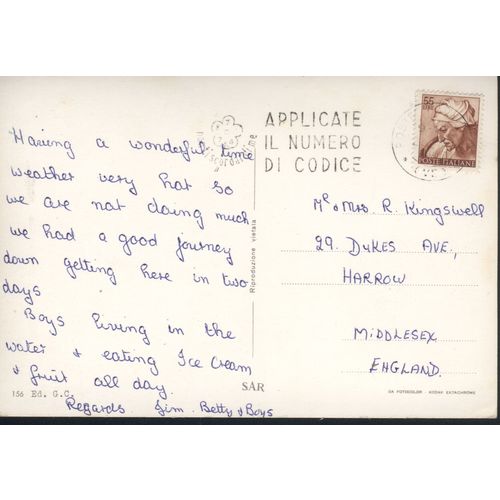 Having a wonderful time
weather very hot so
we are not doing much
we had a good journey
down getting here in two
days
Boys living in the
water & eating Ice Cream
& fruit all day.
Regards Jim. Betty & Boys
156 Ed. G.C.
SAR
Riproduzione vietata
APPLICATE
IL NUMERO
DI CODICE
55
LIRE
POSTE ITALIANE
Mr & Mrs. R. Kingswell
29. DUKES AVE.,
HARROW
MIDDLESEX
ENGLAND.
DA FOTOCOLOR - KODAK EKTACHROME